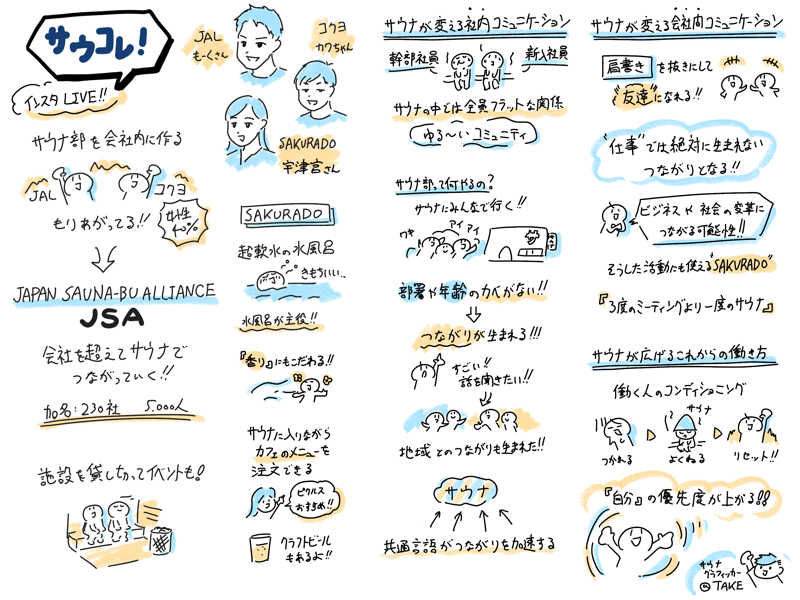 サウコレ!
インスタLIVE!!
サウナ部を会社内に作る
JAL
コクヨ
もりあがってる!!
女性
40%
JAPAN SAUNA-BU ALLIANCE
JSA
会社を超えてサウナで
つながっていく!!
加名:230社 5.000人
施設を貸しきってイベントも!
JAL
もーくさん
コクヨ
カワちゃん
SAKURADO
宇津宮さん
SAKURADO
超軟水の水風呂
きもちいい...
水風呂が主役!!
『香り』にもこだわる!!
サウナに入りながら
カフェのメニューを
注文できる
ピクルス
おすすめ!!
クラフトビール
もあるよ!!
サウナが変える社内コミュニケーション
幹部社員
新入社員
サウナの中では全員フラットな関係
ゆる〜いコミュニティ
サウナ部って何やるの?
サウナにみんなで行く!!
ワキ
アイ
アイ
部署や年齢のカベがない!!
つながりが生まれる!!!
すごい!!
話を聞きたい!!
地域とのつながりも生まれた!!
サウナ
共通言語がつながりを加速する
サウナが変える会社内コミュニケーション
肩書きを抜きにして
"友達"になれる!!
"仕事"では絶対に生まれない
つながりとなる!!
ビジネスや社会の変革に
つながる可能性!!
そうした活動にも使える"SAKURADO"
『3度のミーティングより一度のサウナ』
サウナが広げるこれからの働き方
働く人のコンディショニング
つかれる
サウナ
よくねる
リセット!!
『自分』の優先度が上がる!!
サウナ
グラフィッカー
TAKE